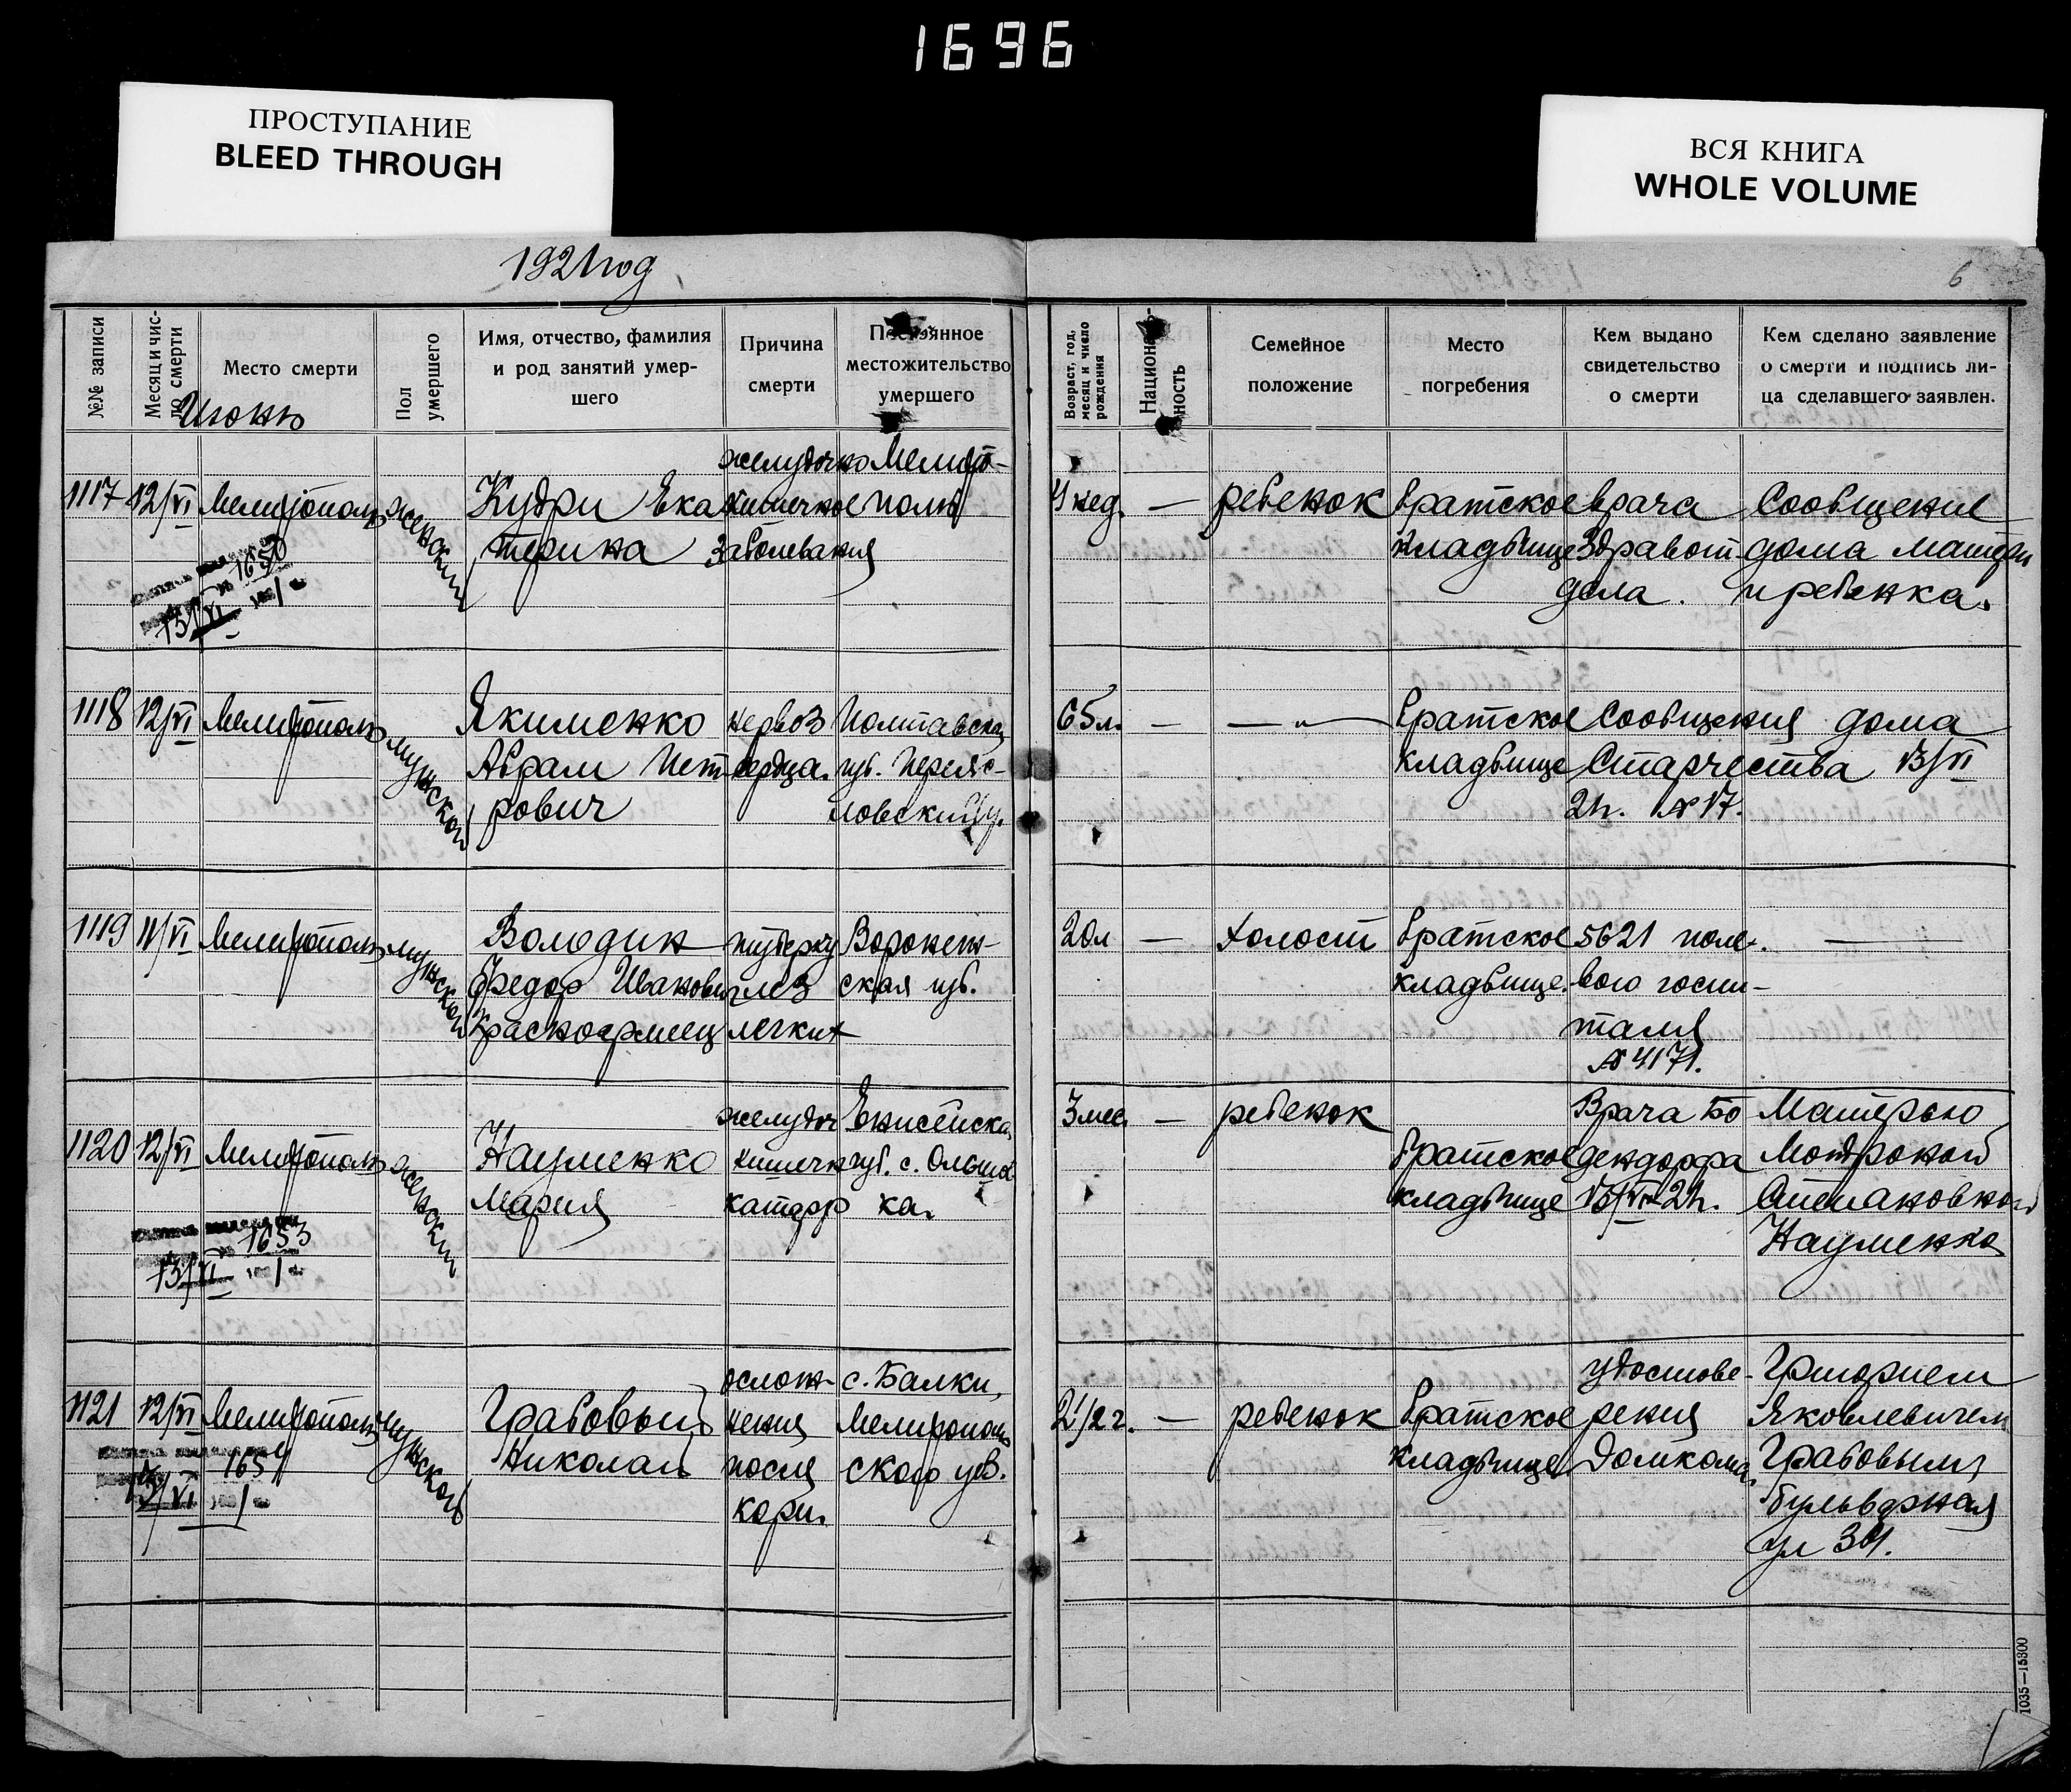 1696
ПРОСТУПАНИЕ
BLEED THROUGH
ВСЯ КНИГА
WHOLE VOLUME
1921 год
6
№№ записи
Месяц и чис-
ло смерти
Место смерти
Пол
умершего
Имя, отчество, фамилия
и род занятий умер-
шего
Причина
смерти
Постоянное
местожительство
умершего
Возраст, год,
месяц и число
рождения
Националь-
ность
Семейное
положение
Место
погребения
Кем выдано
свидетельство
о смерти
Кем сделано заявление
о смерти и подпись ли-
ца сделавшего заявлен.
Июнь
1117
12/VI
Мелитополь
женский
Кудри Ека
терина
желудочно
кишечное
заболевания
Мелито-
поль
4 нед.
—
ребенок
братское
кладбище
врача
Здравот-
дела.
Сообщение
дома матери
и ребенка.
1650
13/VI 1
1118
12/VI
Мелитополь
мужской
Якименко
Абрам Пет-
рович
невроз
сердца.
Полтавская
губ. Переяс-
ловский у.
65 л.
—
— " —
братское
кладбище
Сообщения дома
Старчества 13/VI
21 г. № 17.
1119
11/VI
Мелитополь
мужской
Володин
Федор Иванович
Красноармеец
туберку
лез
легких
Воронеж-
ская губ.
20 л
—
холост
братское
кладбище.
5621 поле-
вого госпи-
таля
№ 4171.
—
1120
12/VI
Мелитополь
женский
Науменко
Мария
желудоч
кишечн
катарр
Енисейская
губ. с. Ольшан
ка.
3 мес.
—
ребенок
братское
кладбище
Врача Бо
дендорфа
13/VI 21 г.
Матерью
Мотроной
Степановной
Науменко
1653
13/VI 1
1121
12/VI
Мелитополь
мужской
Грабовый
Николай
ослож-
нения
после
кори.
с. Балки,
Мелитополь
ского уез.
2 1/2 г.
—
ребенок
братское
кладбище
удостове-
рения
Домкома.
Григорием
Яковлевичем
Грабовым,
бульварная
ул 31.
1654
13/VI 1
1035—15300